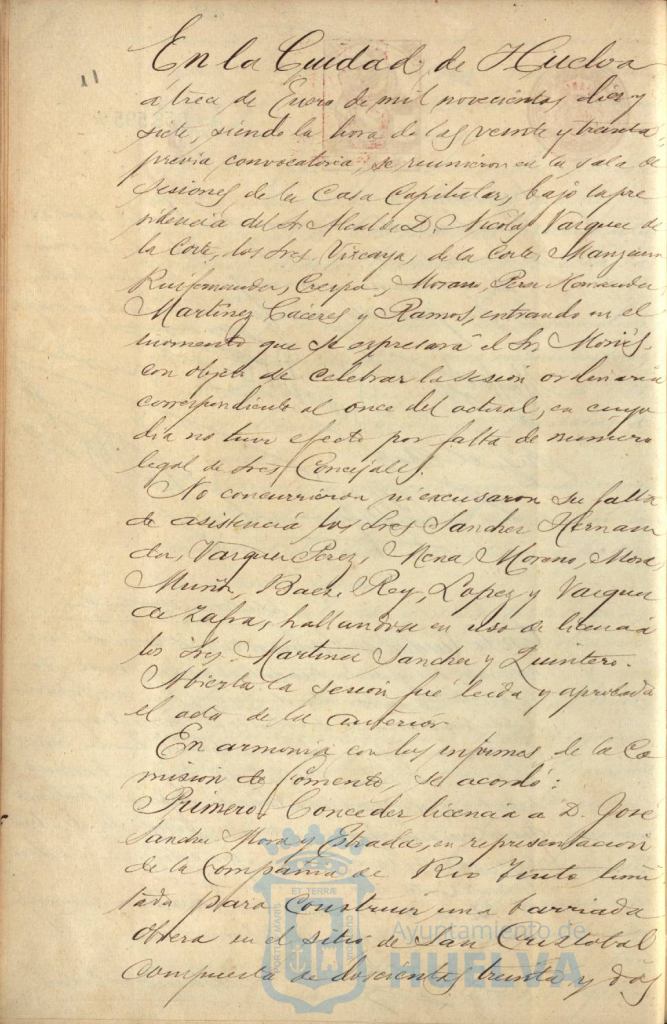 11
En la Ciudad de Huelva
a trece de Enero de mil novecientos diez y
siete, siendo la hora de las veinte y treinta
previa convocatoria, se reunieron en la sala de
sesiones de la Casa Capitular, bajo la pre
sidencia del Sr. Alcalde D. Nicolas Vazquez de
la Corte, los Sres. Vizcaya, de la Corte, Manzano
Ruifernandez, Crespo, Morano, Perez Hernandez
Martinez Cáceres y Ramos, entrando en el
momento que se expresará el Sr.
con objeto de celebrar la sesión ordinaria
correspondiente al once del actual, en cuyo
dia no tuvo efecto por falta de numero
legal de Sres. Concejales.
No concurrieron ni excusaron su falta
de asistencia los Sres. Sanchez Hernan
dez, Vazquez Perez, Mena, Moreno, Mora
Muñoz, Baez, Rey, Lopez y Vazquez
de Zafra, hallandose en uso de licencia
los Sres. Martinez Sanchez y Quintero.
Abierta la sesión fué leida y aprobada
el acta de la anterior.
En armonia con los informes de la Co
mision de Fomento, se acordó:
Primero. Conceder licencia a D. José
Sanchez Mora y Estrada, en representacion
de la Compañia de Rio Tinto limi
tada para construir una barriada
obrera en el sitio de San Cristobal
compuesta de doscientas treinta y dos
ET TERRÆ
PORTUS MARIS
Ayuntamiento de
HUELVA